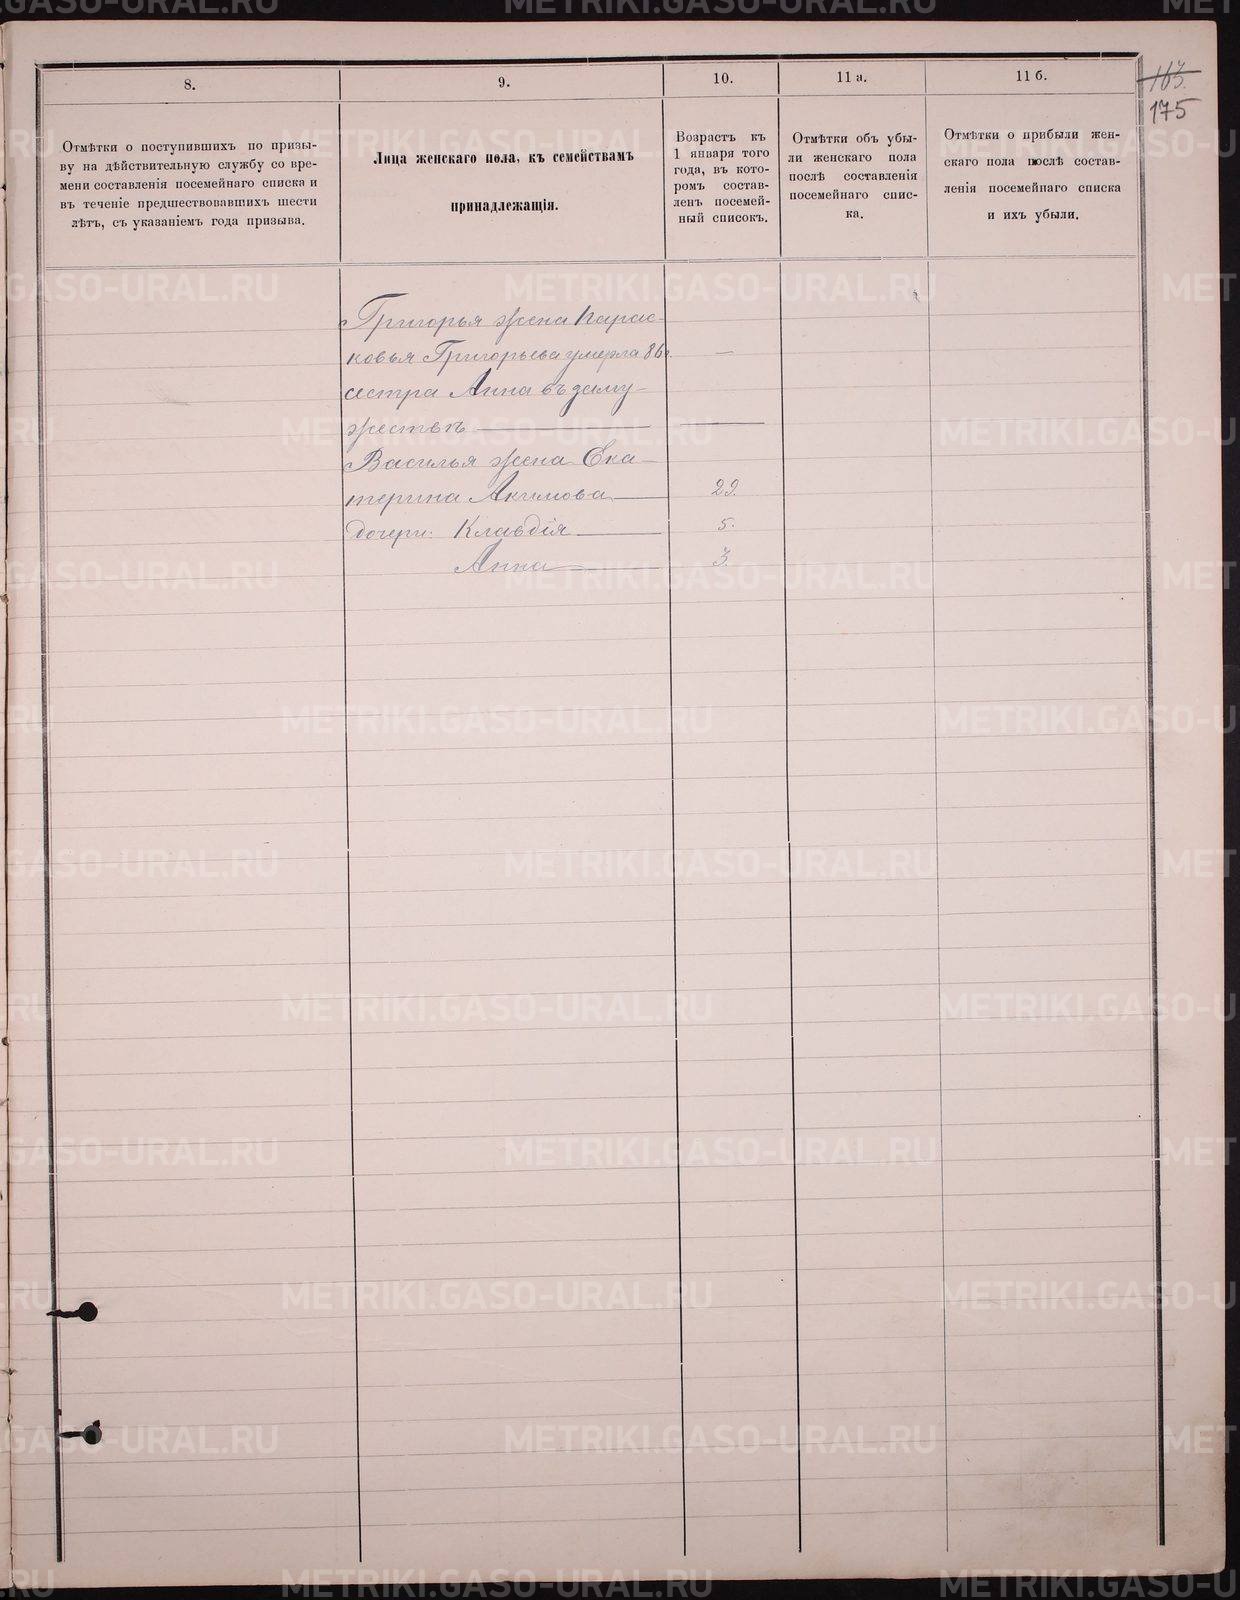 8.
9.
10.
11 а.
11 б.
163.
175
Отмѣтки о поступившихъ по призы-
ву на дѣйствительную службу со вре-
мени составленія посемейнаго списка и
въ теченіе предшествовавшихъ шести
лѣтъ, съ указаніемъ года призыва.
Лица женскаго пола, къ семействамъ
принадлежащія.
Возрастъ къ
1 января того
года, въ кото-
ромъ состав-
ленъ посемей-
ный списокъ.
Отмѣтки объ убы-
ли женскаго пола
послѣ составленія
посемейнаго спис-
ка.
Отмѣтки о прибыли жен-
скаго пола послѣ состав-
ленія посемейнаго списка
и ихъ убыли.
Григорья жена Парас-
ковья Григорьева умерла 86 г. —
сестра Анна въ заму-
жествѣ — —
Василья жена Ека-
терина Акимова — 29.
дочери: Клавдія — 5.
Анна — 3.
METRIKI.GASO-URAL.RU